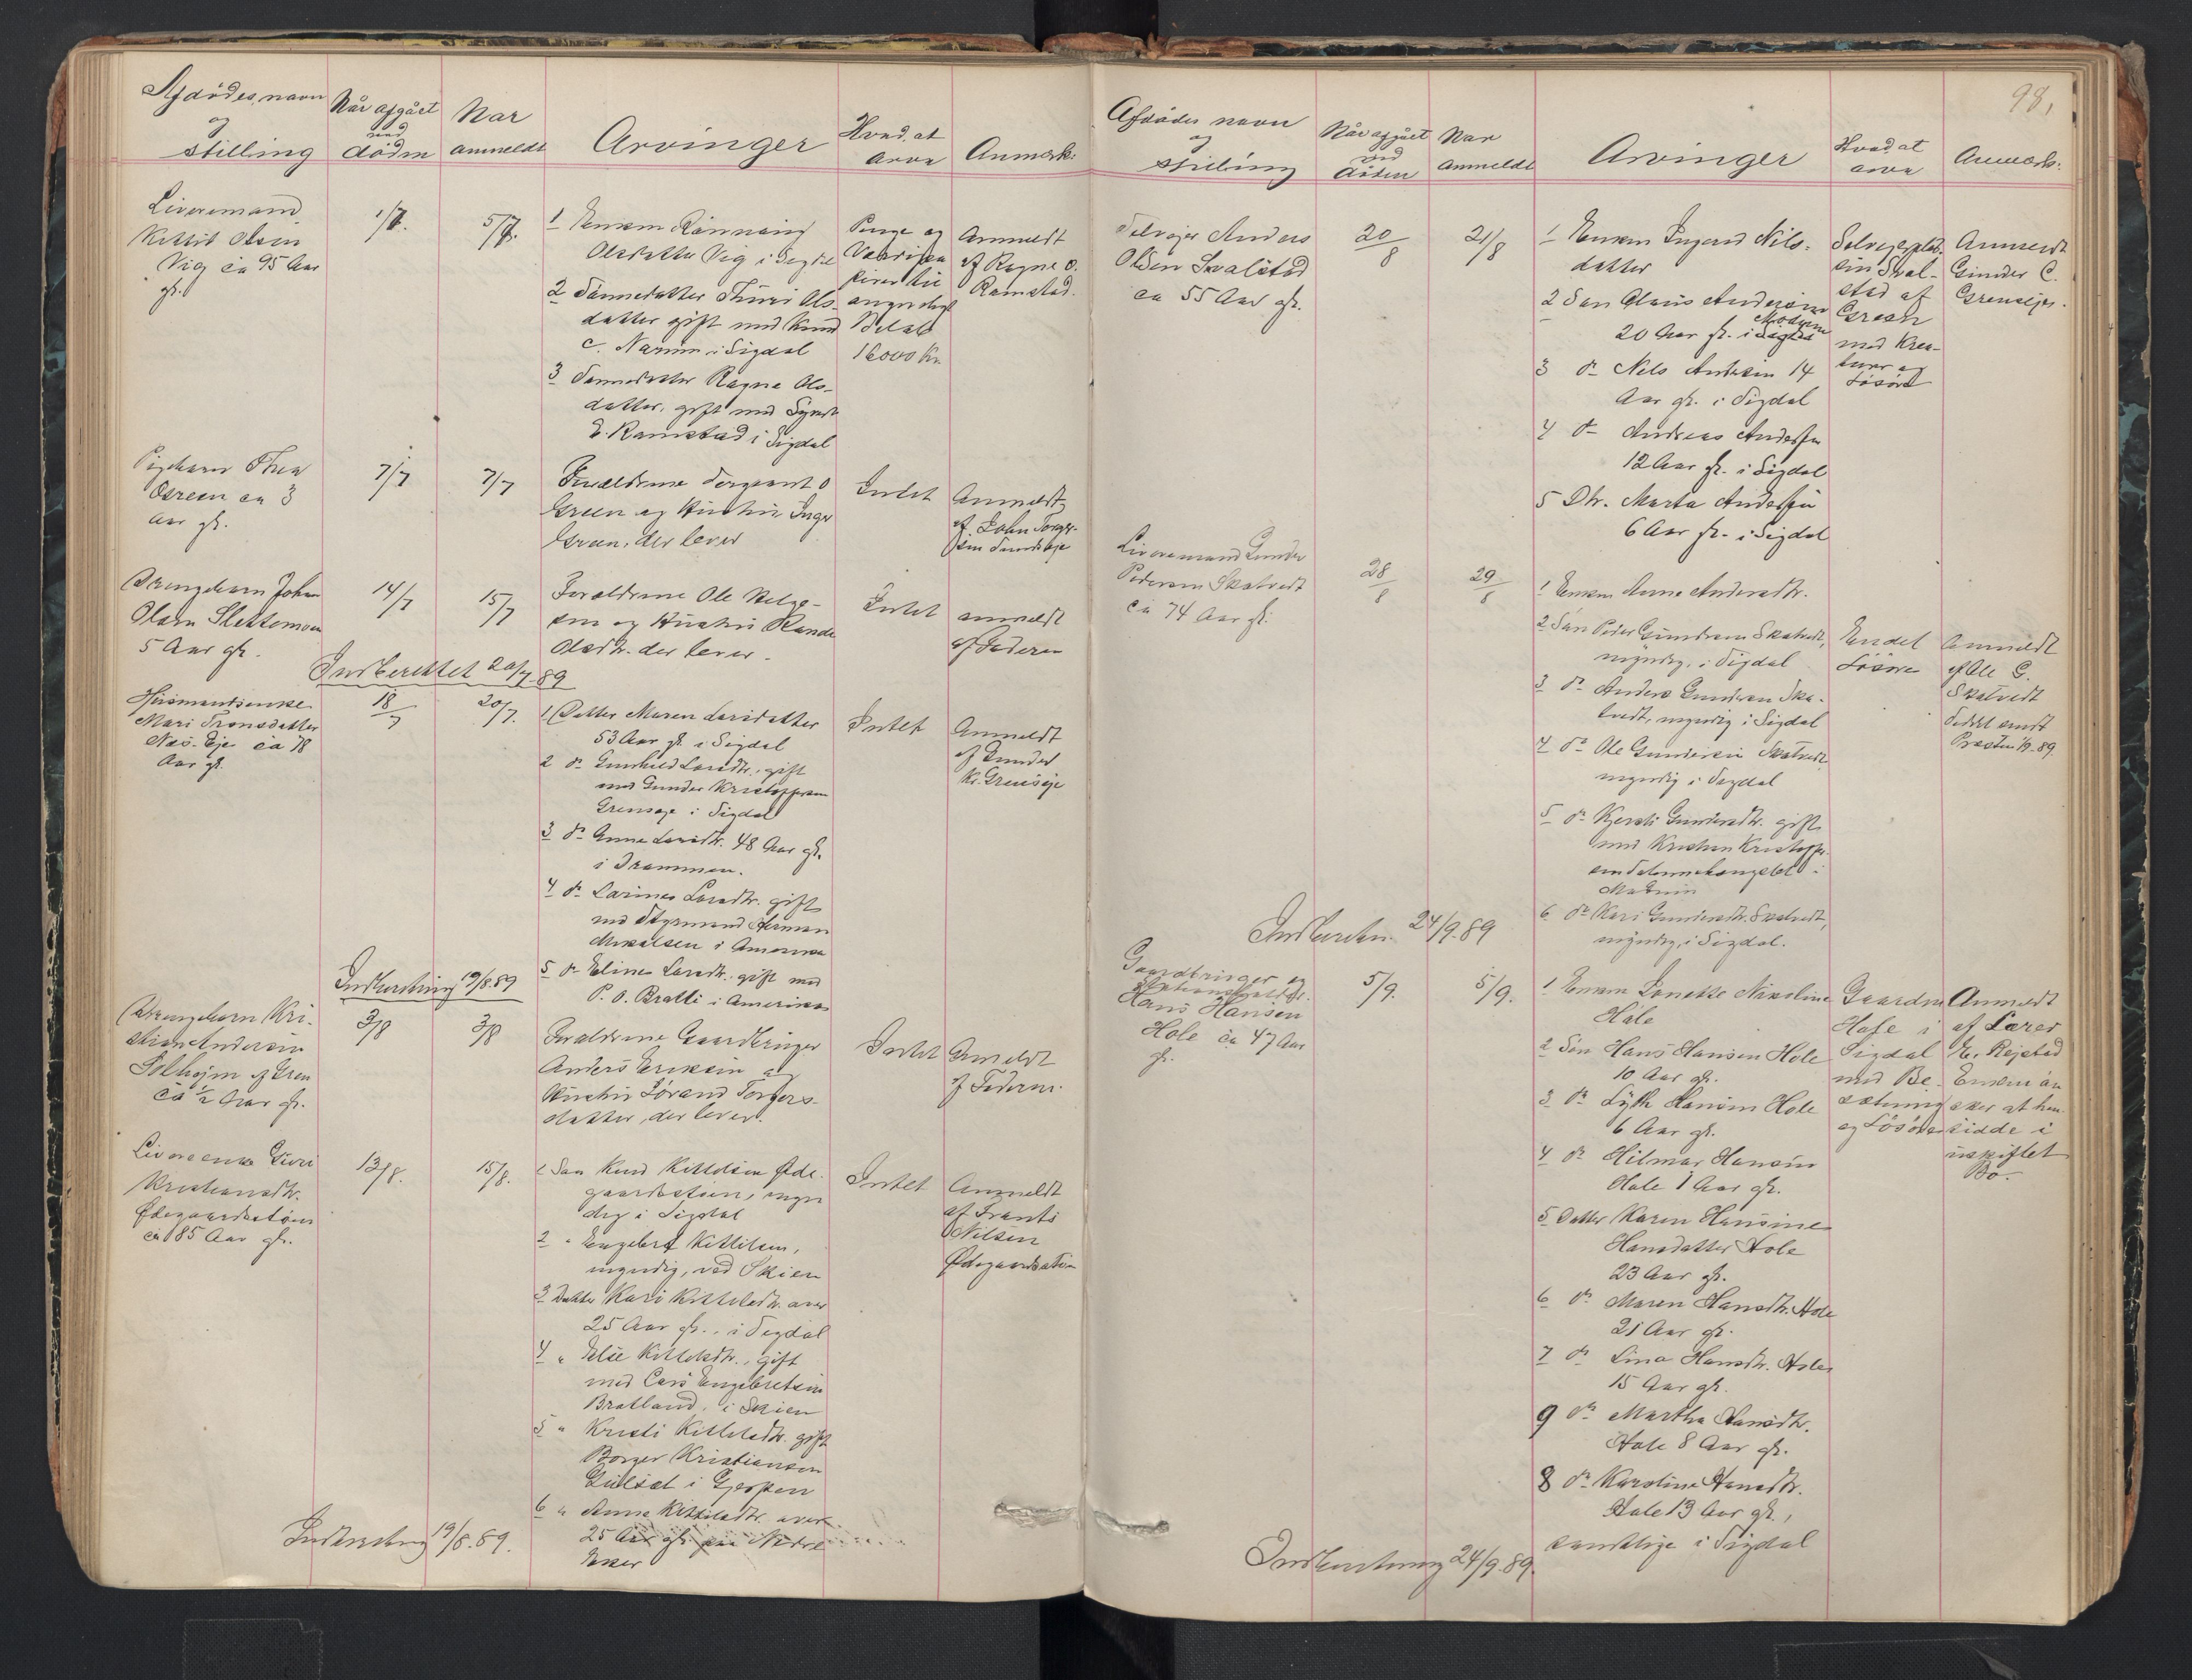 Afdödes navn
og
stilling
Når afgået
ved
döden
Nar
anmeldt
Arvinger
Hvad at
arve
Anmærk:
Livøremand
Kittil Olsen
Vig ca 95 Aar
gl.
1/7.
5/7.
1 Enken Rönnaug
Olsdatter Vig i Sigdal
2 Sönnedatter Thuri Ols-
datter gift med Knud
C. Narum i Sigdal
3 Sønnedatter Ragne Ols-
datter, gift med
E. Ramstad i Sigdal
Penge og
Værdipa
pirer til
angivelig
Beløb
16000 Kr.
Anmeldt
af Ragne O.
Ramstad.
Pigebarn Thea
Green ca 3
Aar gl.
7/7
7/7
Forældrene Sergeant O
Green og Hustru Inger
Green, der lever
Intet
Anmeldt
af John Torger-
sen
Drengebarn Johan
Olsen Slettemoen
5 Aar gl.
14/7
15/7
Forældrene Ole Helge-
sen og Hustru Rande
Olsdtr. der lever.
Intet
anmeldt
af Faderen
Indberettet 20/7 89
Husmandsenke
Mari Tronsdatter
Næs-Eje ca 78
Aar gl.
18/7
20/7.
1 Datter Maren Larsdatter
53 Aar gl. i Sigdal
2 do Gunhild Larsdtr. gift
med Gunder Kristoffersen
Grenseje i Sigdal
3 do Anne Larsdtr. 48 Aar gl.
i Drammen.
4 do Larine Larsdtr. gift
med Styrmand Herman
Mikalsen i Amerika
5 do Eline Larsdtr. gift med
P. O. Bratli i Amerika
Intet
Anmeldt
af Gunder
Kr. Grenseje
Indberetning 19/8.89
Drengebarn Kri-
stian Andersen
Solhejm af Gren
ca 1/2 Aar gl.
3/8
3/8
Forældrene Gaardbruger
Anders Eriksen og
Hustru Jørand Torgers-
datter, der lever.
Intet
Anmeldt
af Faderen.
Livøreenke Guri
Kristiansdtr.
Ødegaardsstøen
ca 85 Aar gl.
13/8.
15/8.
1 Søn Knud Kittelsen Øde-
gaardsstøen, myn
dig i Sigdal
2 " Engebret Kittilsen,
myndig, ved Skien
3 Datter Kari Kittelsdtr. over
25 Aar gl., i Sigdal
4 " Else Kittelsdtr., gift
med Lars Engebretsen
Bratland, i Skien
5 " Kristi Kittelsdtr. gift
Borger Kristiansen
Gulset i Gjerpen
6 " Anne Kittilsdtr. over
25 Aar gl. paa Nedre
Eker
Intet
Anmeldt
af Frants
Nilsen
Ødegaardsstøen
Indberetning 19/8.89.
98,
Afdödes navn
og
stilling
Når afgået
ved
döden
Nar
anmeldt
Arvinger
Hvad at
arve
Anmærk:
Selvejer Anders
Olsen Svalstad
ca 55 Aar gl.
20/8
21/8
1 Enken Ingerid Nils-
datter
2 Søn Olaus Andersen
Modum
20 Aar gl. i Sigdal
3 do Nils Andersen 14
Aar gl. i Sigdal
4 do Andreas Andersen
12 Aar gl. i Sigdal
5 Dtr. Marta Andersen
6 Aar gl. i Sigdal
Selvejerplad-
sen Sval-
stad af
Green
med Krea-
turer og
Løsøre
Anmeldt
Gunder C.
Grenseje.
Livøremand Gunder
Pedersen Skatvedt
ca 74 Aar gl.
28/8
29/8
1 Enken Anne Andersdtr.
2 Søn Peder Gundersen Skatvedt,
myndig, i Sigdal
3 do Anders Gundersen Ska-
tvedt, myndig i Sigdal
4 do Ole Gundersen Skatvedt
myndig i Sigdal
5 do Kjersti Gundersdtr. gift
med Kristen Kristoffer-
sen i
Modum
6 do Kari Gundersdtr. Skatvedt,
myndig, i Sigdal.
Endel
Løsøre
Anmeldt
af Ole G.
Skatvedt
Seddel sendt
Præsten 1/9-89.
Indberetn. 24/9.89
Gaardbruger og
Hans Hansen
Hole ca 47 Aar
gl.
5/9.
5/9.
1 Enken Lonette Nikoline
Hole
2 Søn Hans Hansen Hole
10 Aar gl.
3 do Lyth Hansen Hole
6 Aar gl.
4 do Hilmar Hansen
Hole 1 Aar gl.
5 Datter Karen Hansine
Hansdatter Hole
23 Aar gl.
6 do Maren Hansdtr. Hole
21 Aar gl.
7 do Lina Hansdtr. Hole
15 Aar gl.
9 do Martha Hansdtr.
Hole 8 Aar gl.
8 do Karoline Hansdtr.
Hole 13 Aar gl.,
samtlige i Sigdal
Gaarden
Hole i
Sigdal
med Be-
sætning
og Løsøre
Anmeldt
af Lærer
E. Rejstad
Enken øn
sker at hen-
sidde i
uskiftet
Bo.
Indberetning 24/9.89.